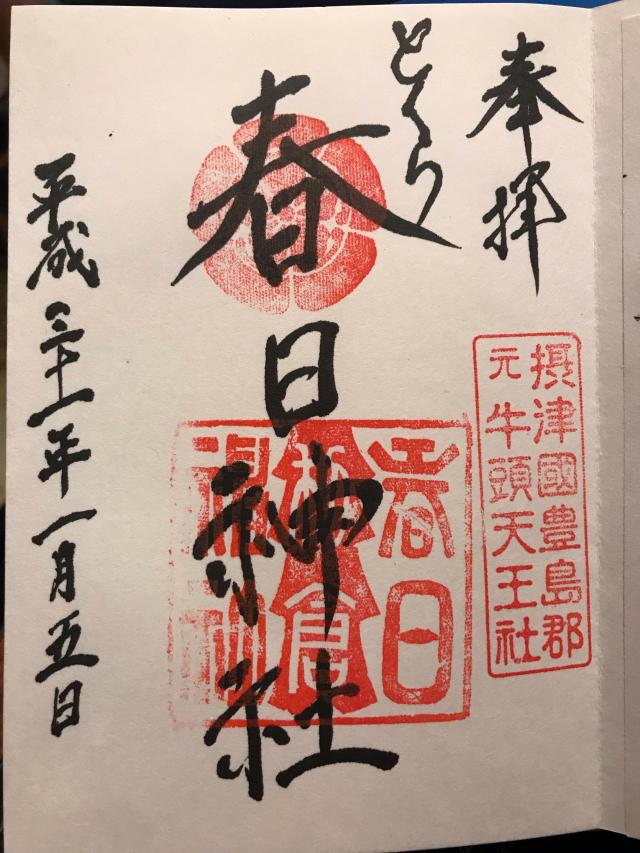 奉拝
摂津國豊島郡
元牛頭天王社
とくら
春日神社
春日
倉
神社
平成三十一年一月五日